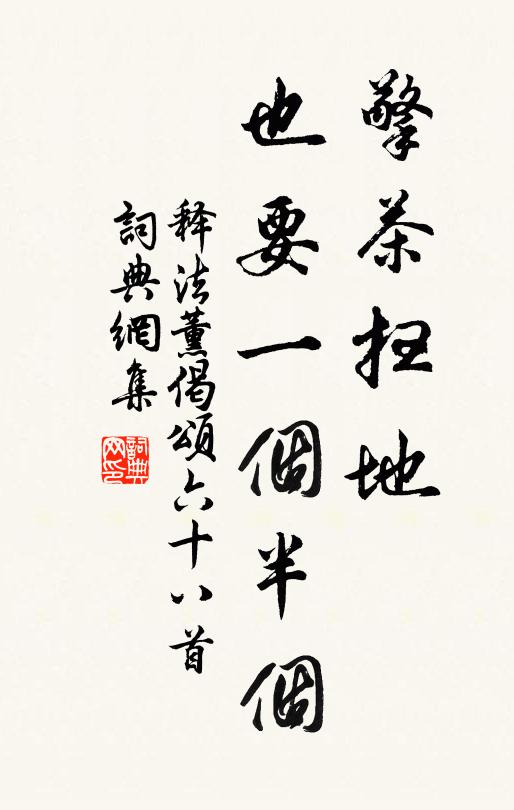 擎茶扫地
也要一個半個
释法薰偈頌六十八首
詞典網集
詞典網印